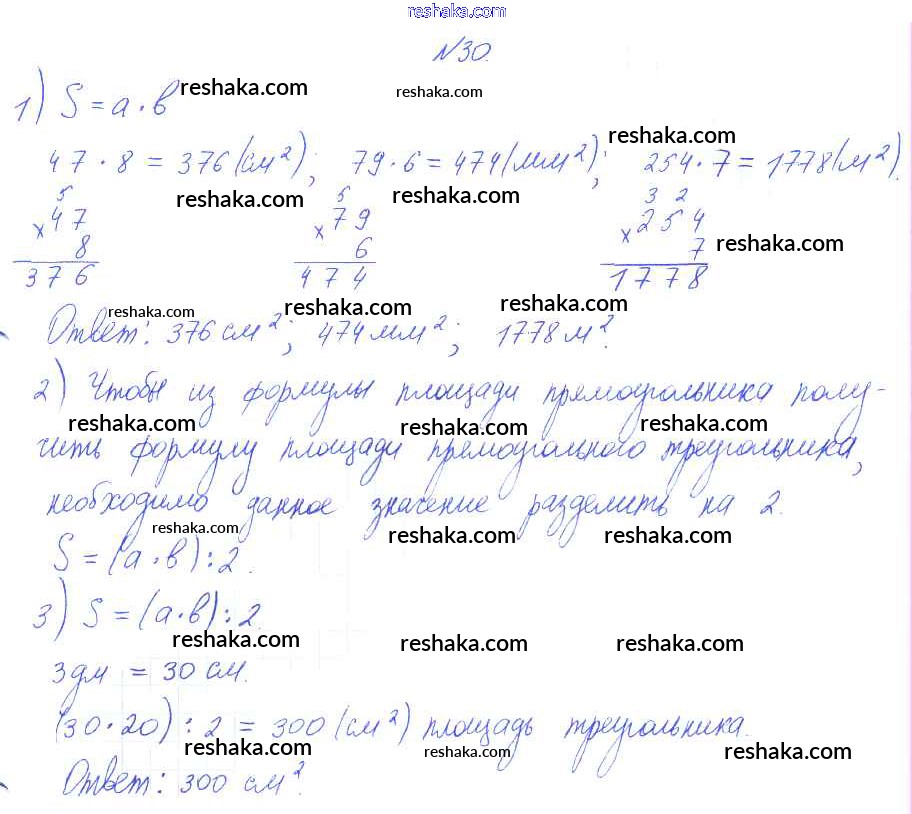 reshaka.com
№30.
1) S = a · в reshaka.com reshaka.com
reshaka.com
47 · 8 = 376 (см²); 79 · 6 = 474 (мм²); 254 · 7 = 1778 (м²).
reshaka.com reshaka.com
5 5 3 2
× 47 × 79 × 254
8 6 7 reshaka.com
376 474 1778
reshaka.com reshaka.com reshaka.com
Ответ: 376 см²; 474 мм²; 1778 м².
2) Чтобы из формулы площади прямоугольника полу-
reshaka.com reshaka.com reshaka.com
чить формулу площади прямоугольного треугольника,
необходимо данное значение разделить на 2.
reshaka.com reshaka.com reshaka.com
S = (a · в) : 2.
3) S = (a · в) : 2.
reshaka.com reshaka.com reshaka.com
3 дм = 30 см.
(30 · 20) : 2 = 300 (см²) площадь треугольника.
reshaka.com reshaka.com reshaka.com
Ответ: 300 см².